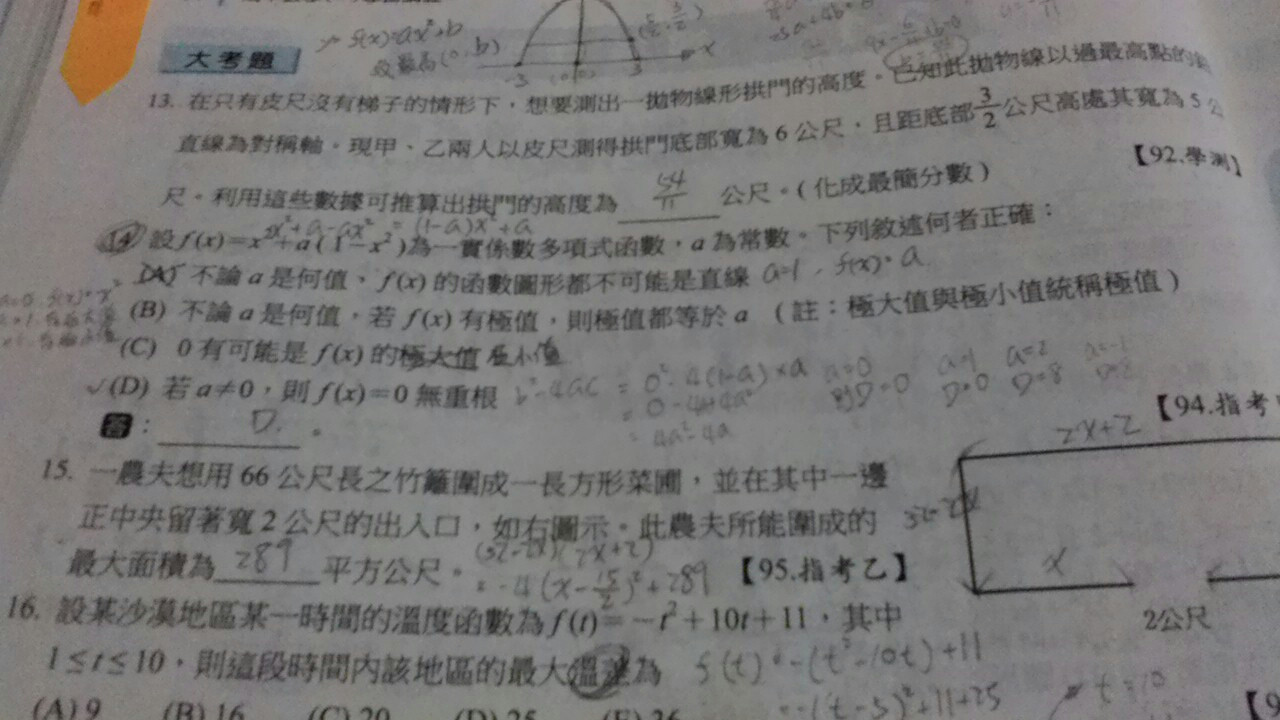 f(x)=ax²+b
(0,b)
-3
3
x
大考題
13. 在只有皮尺沒有梯子的情形下，想要測出一拋物線形拱門的高度。已知此拋物線以過最高點的
直線為對稱軸。現甲、乙兩人以皮尺測得拱門底部寬為 6 公尺，且距底部 3/2 公尺高處其寬為 5 公
尺。利用這些數據可推算出拱門的高度為 54/11 公尺。( 化成最簡分數 ) 【92.學測】
= (1-a)x²+a
14 設 f(x)=x²+a(1-x²)為一實係數多項式函數，a 為常數。下列敘述何者正確：
(A) 不論 a 是何值，f(x) 的函數圖形都不可能是直線 a=1, f(x)=a
(B) 不論 a 是何值，若 f(x) 有極值，則極值都等於 a （註：極大值與極小值統稱極值）
(C) 0 有可能是 f(x) 的極大值
✓(D) 若 a≠0，則 f(x)=0 無重根 b²-4ac = 0²-4(1-a)×a
= 0-4a+4a²
= 4a²-4a
a=0 a=1 a=2 a=-1
D=0 D=0 D=8
答：D。
【94.指考
15. 一農夫想用 66 公尺長之竹籬圍成一長方形菜圃，並在其中一邊
正中央留著寬 2 公尺的出入口，如右圖示。此農夫所能圍成的
最大面積為 289 平方公尺。 【95.指考乙】
(32-2x)(2x+2)
= -4(x-15/2)²+289
2x+2
32-2x
x
2公尺
16. 設某沙漠地區某一時間的溫度函數為 f(t)=-t²+10t+11，其中
1≤t≤10，則這段時間內該地區的最大溫差為
f(t)=-(t²-10t)+11
=-(t-5)²+11+25
t=10
(A) 9 (B) 16 (C) 20 (D) 25 (E) 36